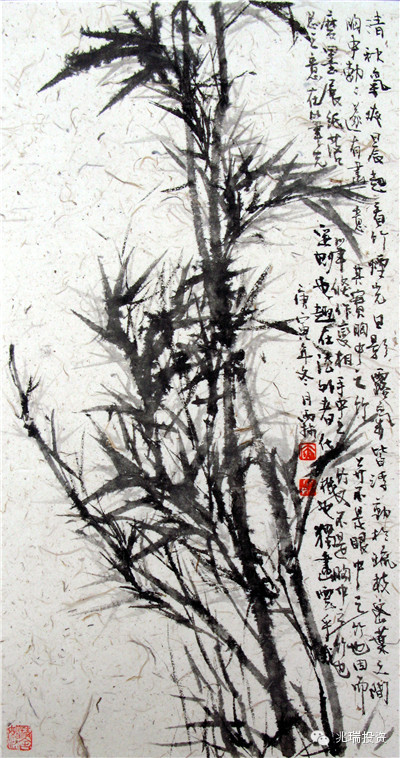 清秋氣爽晨起看竹煙光日影露氣皆浮動於疏枝密葉之間
胸中勃〻遂有畫意其實胸中之竹并不是眼中之竹也因而
磨墨展紙落筆倏作變相手中之竹又不是胸中之竹也
总之意在笔先定則也趣在法外者化機也獨畫雲乎哉
庚寅年冬月
兆瑞投资